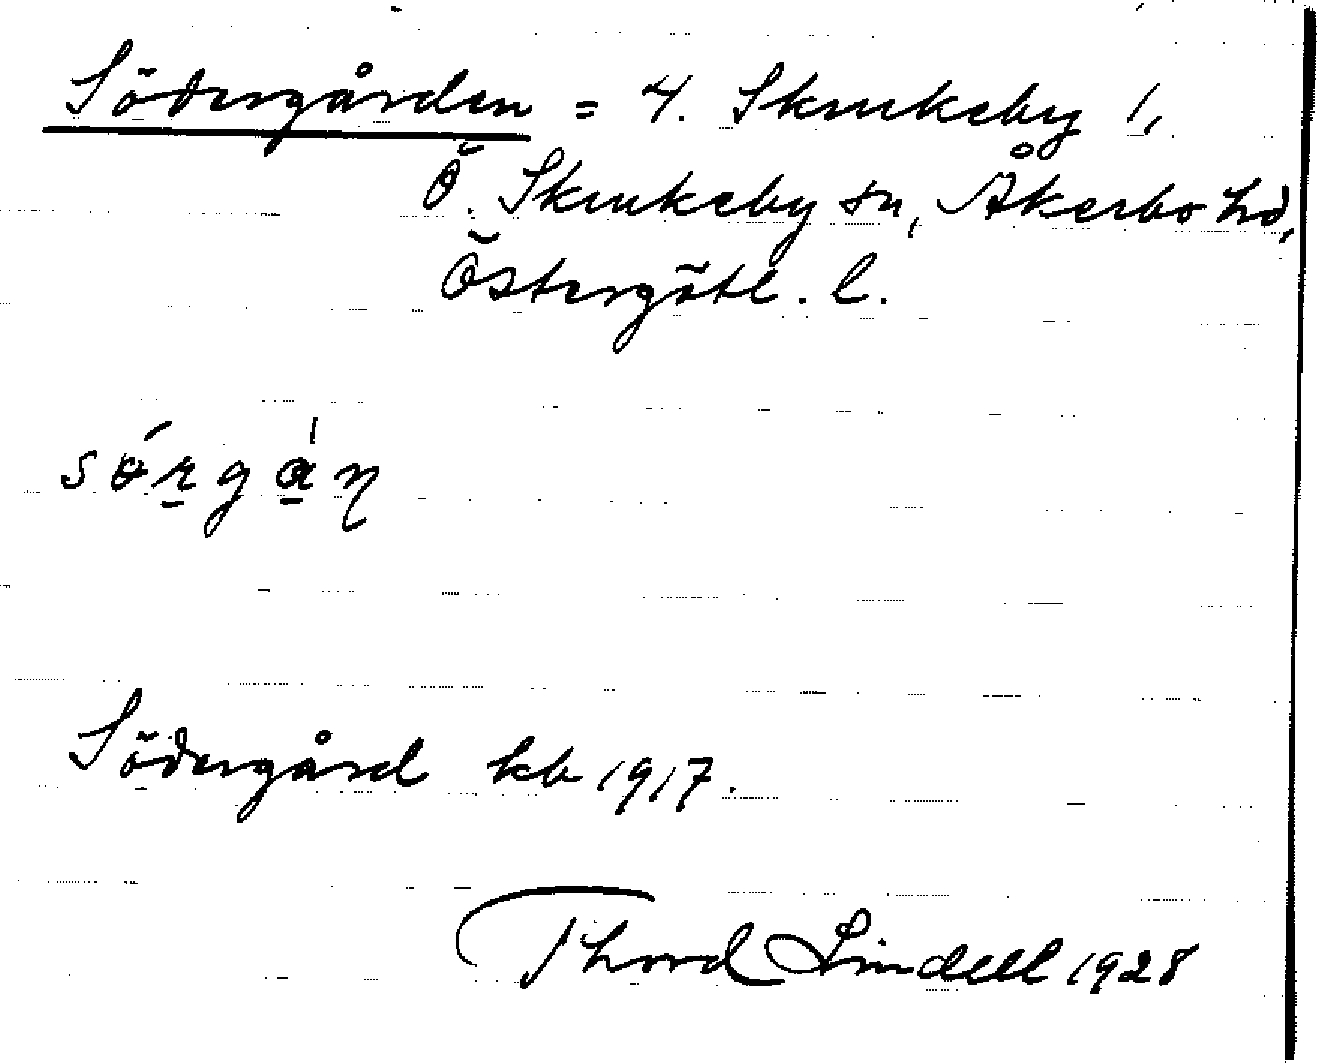 Södergården = 4. Skrukeby 1,
Ö. Skrukeby sn, Åkerbo hd,
Östergötl. l.
Södergård kb 1917.
Thord Lindell 1928